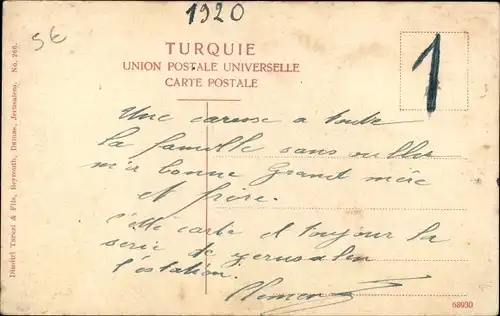 1920
5€
TURQUIE
UNION POSTALE UNIVERSELLE
CARTE POSTALE
1
Une caresse a toute
la famille sans oublier
bonne Grand mère
et frère.
Cette carte et toujour la
serie de Jerusalem
l'estation.
Dimitri Tarazi & Fils, Beyrouth, Damas, Jerusalem. No. 266.
68930